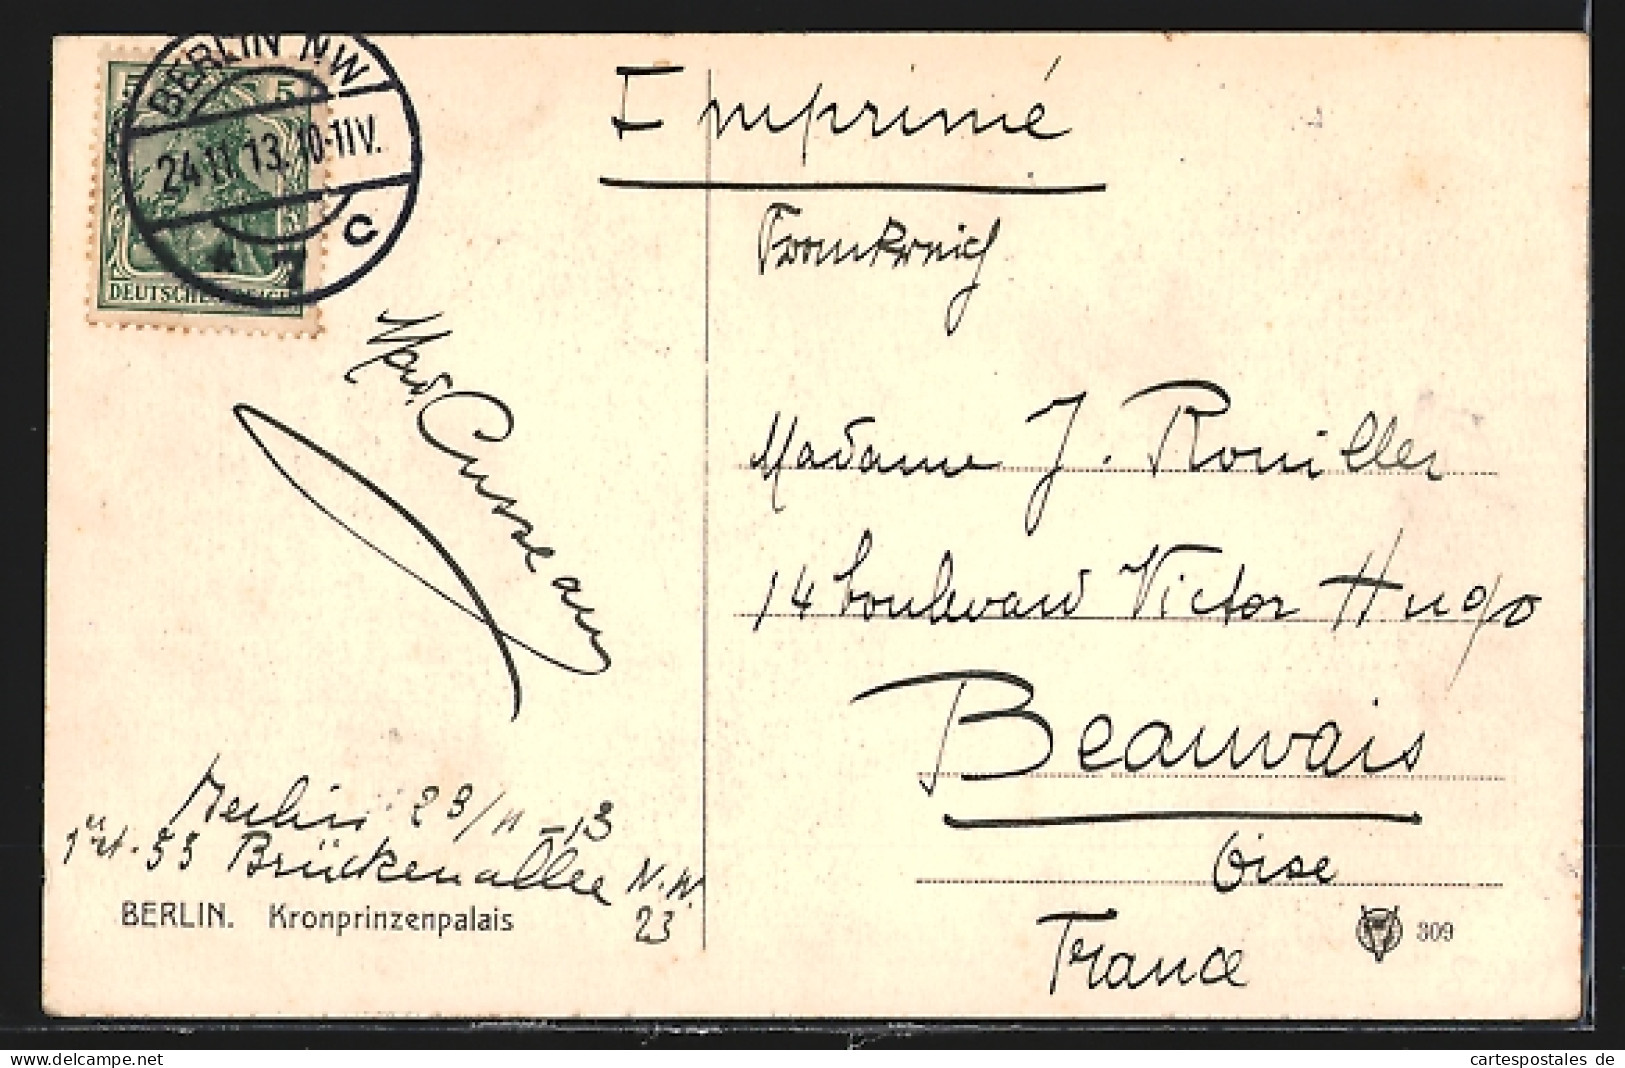 BERLIN NW
5 5
24.11.13. 10-11V.
c
* 7
DEUTSCHES REICH
Imprimé
Frankreich
Madame J. Rouiller
14 boulevard Victor Hugo
Beauvais
Oise
France
Berlin 23/11-13
33 Brückenallee N.W.
23
BERLIN. Kronprinzenpalais
309
cartespostales de